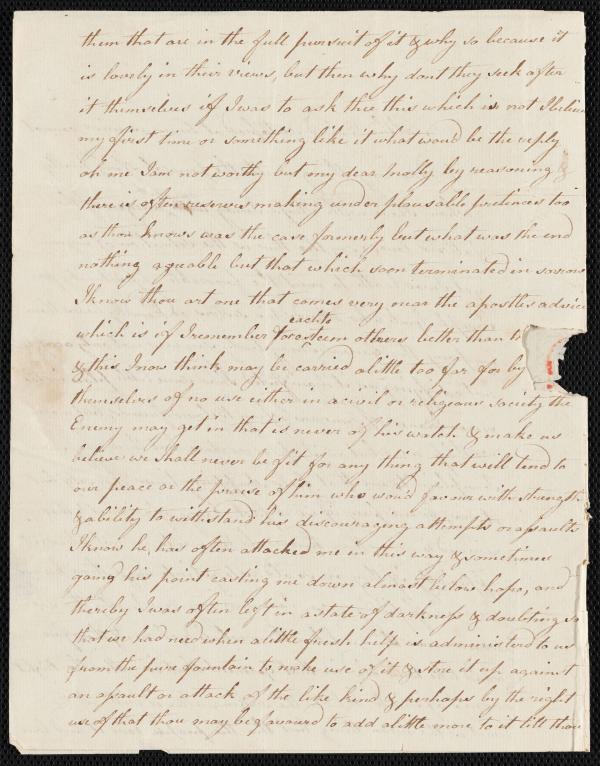 them that are in the full pursuit of it & why so because it
is lovely in their views, but then why dont they seek after
it themselves if I was to ask thee this which is not I believe
my first time or something like it what woud be the reply
oh me I am not worthy but my dear Molly by reasoning &
there is often reserves making under plausable pretences too
as thou knows was the case formerly but what was the end
nothing agreable but that which soon terminated in sorrow
I know thou art one that comes very near the apostles advice
each to
which is if I remember to esteem others better than
& this I now think may be carried a little too far for by
themselves of no use either in a civil or religeous society the
Enemy may get in that is never of his watch & make us
believe we shall never be fit for any thing that will tend to
our peace or the praise of him who woud favour with strength
& ability to withstand his discouraging attempts or assaults
I know he, has often attacked me in this way & sometimes
gaind his point casting me down almost below hope, and
thereby I was often left in a state of darkness & doubting so
that we had need when a little fresh help is administerd to us
from the pure fountain to make use of it & store it up against
an assault or attack of the like kind & perhaps by the right
use of that thou may be favourd to add a little more to it till thou